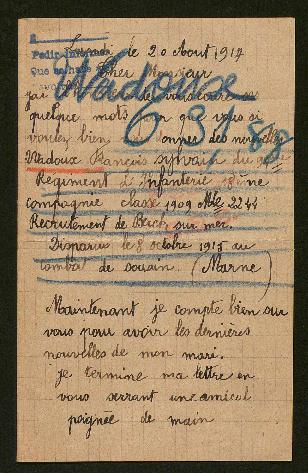 le 20 Aout 1917
Cher Monsieur
Nadoux
quelque mots
63188
voulez bien des nouvelles
Nadoux François Sylvain du
Regiment d'Infanterie
compagnie classe 1909 Mle 2244
Recrutement de sur mer
Disparus le 8 octobre 1915 au
combat de souain. (Marne)
Maintenant je compte bien sur
vous pour avoir les dernières
nouvelles de mon mari.
je termine ma lettre en
vous serrant une amical
poignée de main